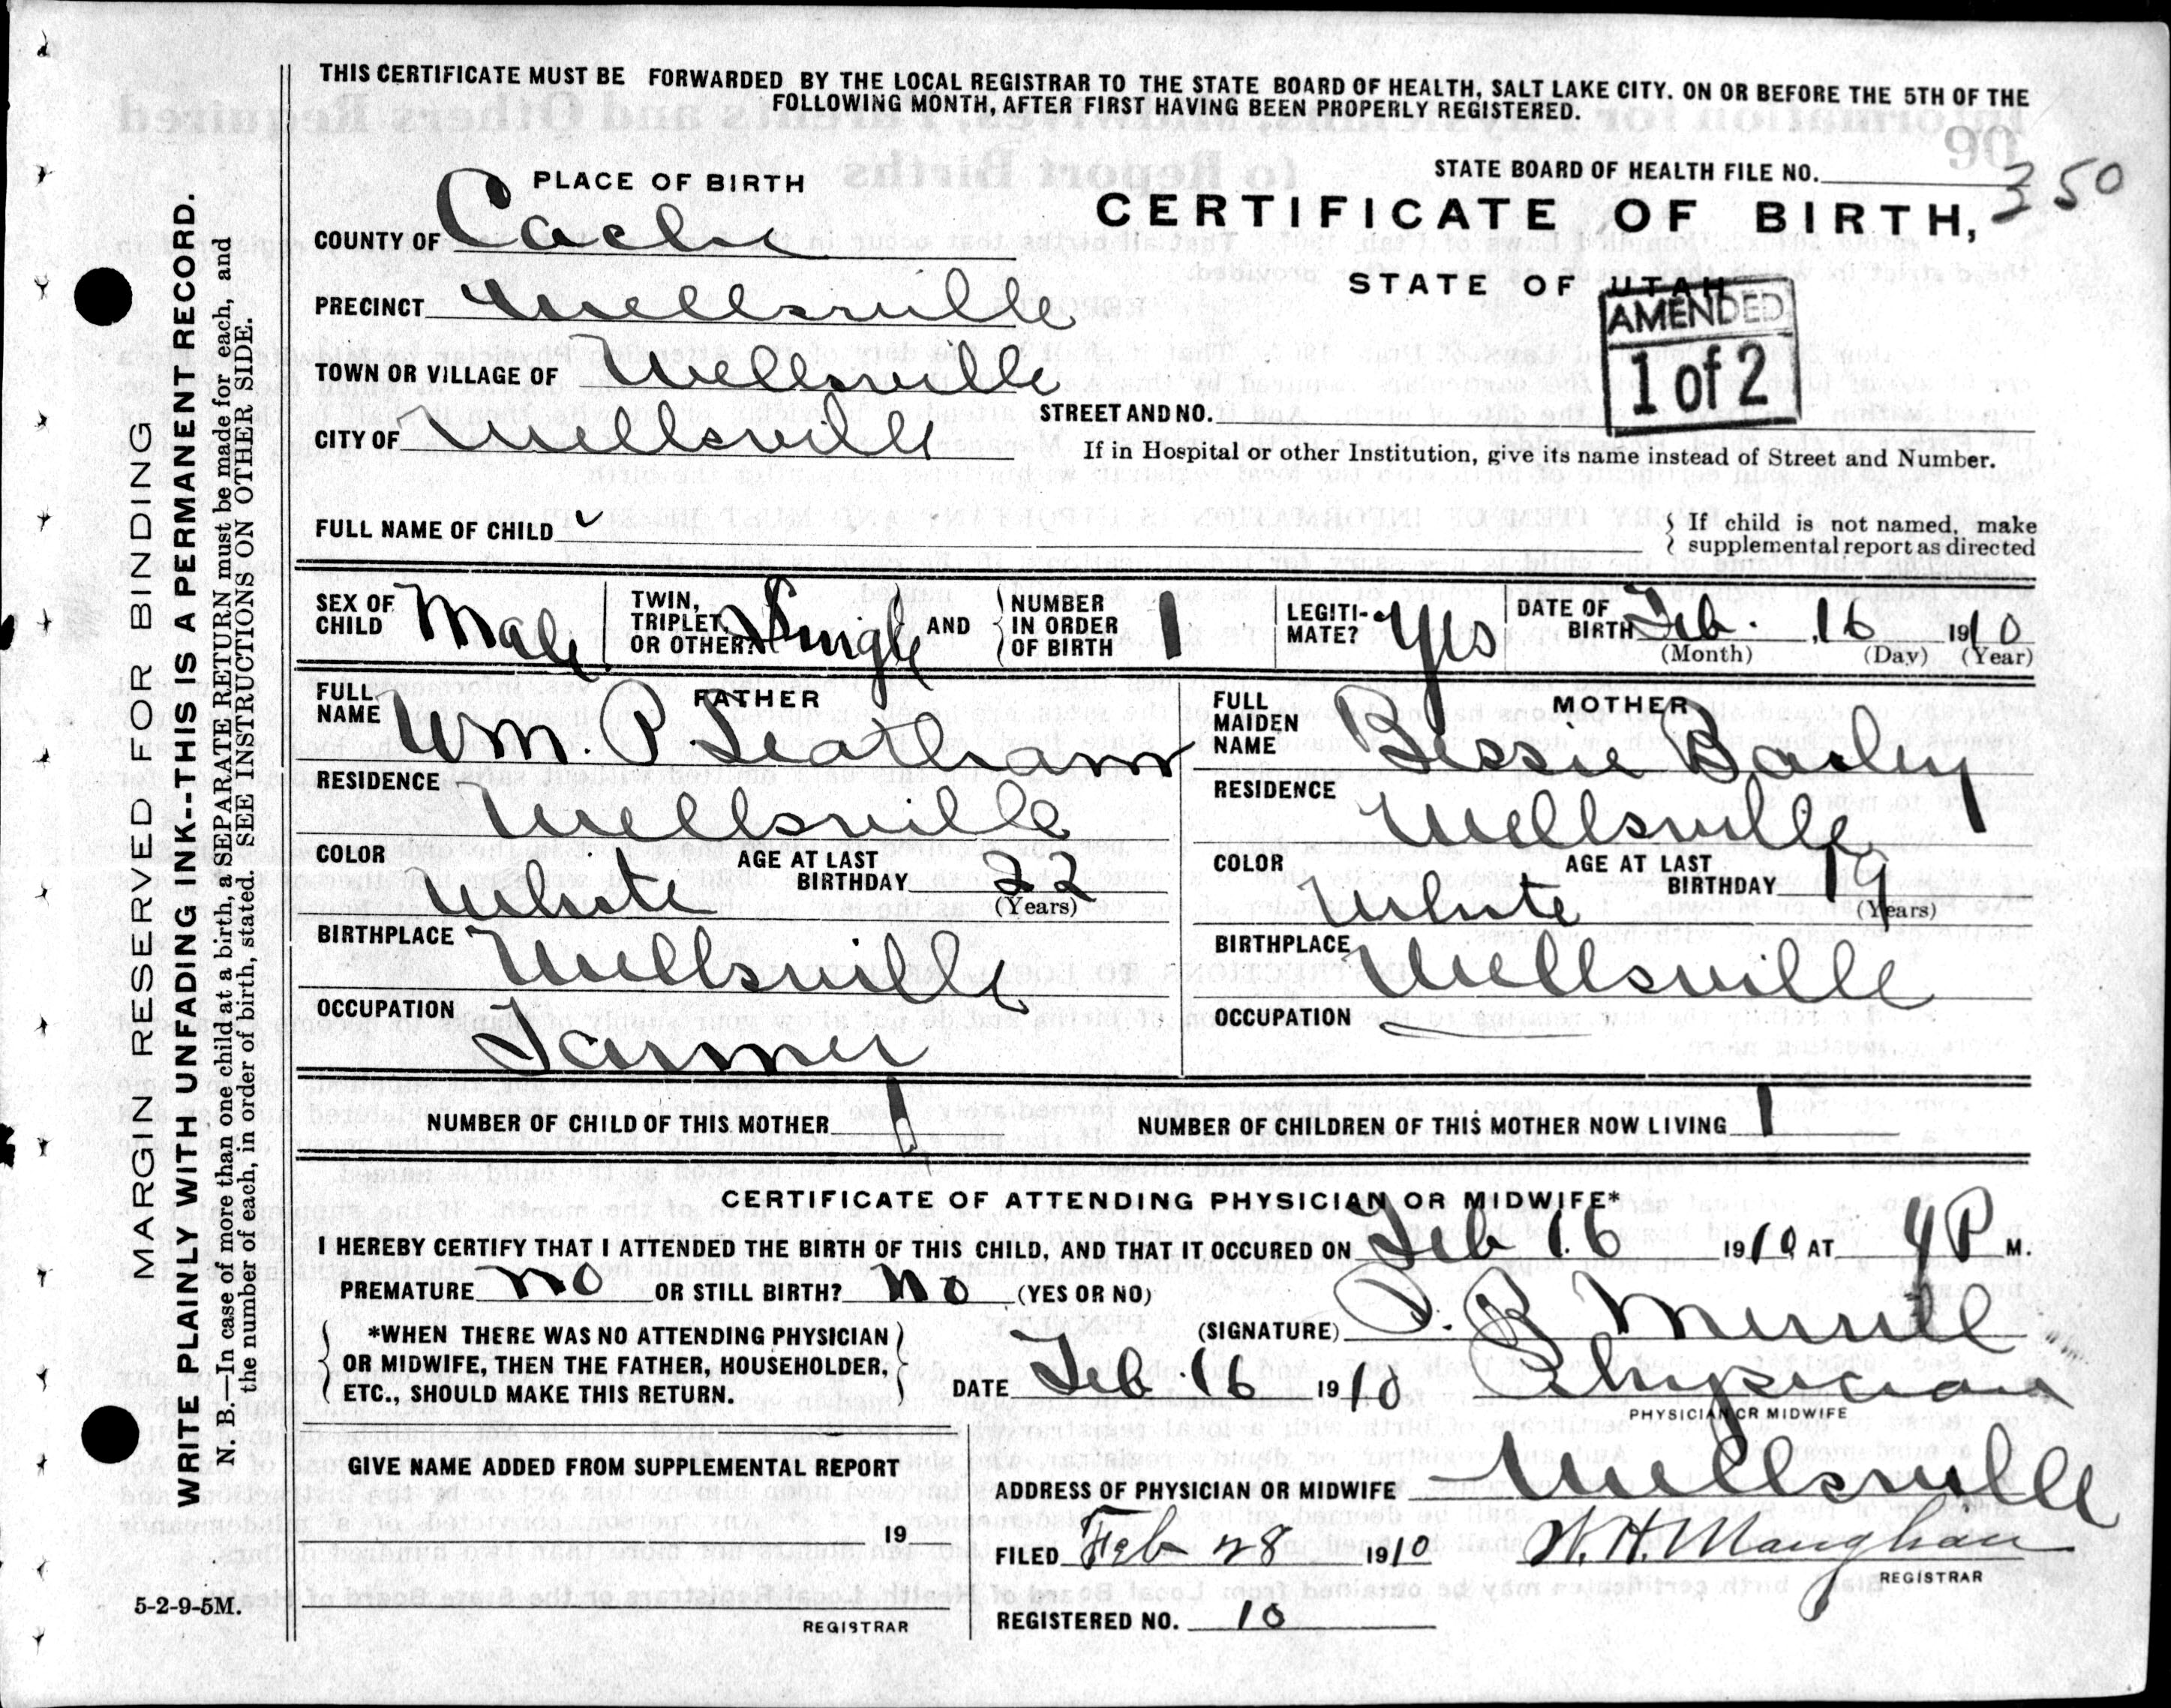 THIS CERTIFICATE MUST BE FORWARDED BY THE LOCAL REGISTRAR TO THE STATE BOARD OF HEALTH, SALT LAKE CITY. ON OR BEFORE THE 5TH OF THE
FOLLOWING MONTH, AFTER FIRST HAVING BEEN PROPERLY REGISTERED.
PLACE OF BIRTH
STATE BOARD OF HEALTH FILE NO. 350
CERTIFICATE OF BIRTH,
STATE OF UTAH
AMENDED
1 of 2
COUNTY OF Cache
PRECINCT Wellsville
TOWN OR VILLAGE OF Wellsville
STREET AND NO.
CITY OF Wellsville
If in Hospital or other Institution, give its name instead of Street and Number.
FULL NAME OF CHILD
If child is not named, make
supplemental report as directed
SEX OF CHILD Male
TWIN, TRIPLET OR OTHER? Single
AND NUMBER IN ORDER OF BIRTH 1
LEGITI-MATE? Yes
DATE OF BIRTH Feb. 16 1910
(Month) (Day) (Year)
FATHER
FULL NAME Wm. P. Leatham
RESIDENCE Wellsville
COLOR White
AGE AT LAST BIRTHDAY 22
(Years)
BIRTHPLACE Wellsville
OCCUPATION Farmer
MOTHER
FULL MAIDEN NAME Bessie Bailey
RESIDENCE Wellsville
COLOR White
AGE AT LAST BIRTHDAY 19
(Years)
BIRTHPLACE Wellsville
OCCUPATION
NUMBER OF CHILD OF THIS MOTHER 1
NUMBER OF CHILDREN OF THIS MOTHER NOW LIVING 1
CERTIFICATE OF ATTENDING PHYSICIAN OR MIDWIFE*
I HEREBY CERTIFY THAT I ATTENDED THE BIRTH OF THIS CHILD, AND THAT IT OCCURED ON Feb 16 1910 AT 4 P M.
PREMATURE No OR STILL BIRTH? No (YES OR NO)
*WHEN THERE WAS NO ATTENDING PHYSICIAN
OR MIDWIFE, THEN THE FATHER, HOUSEHOLDER,
ETC., SHOULD MAKE THIS RETURN.
(SIGNATURE) Merrill
DATE Feb. 16 1910
Physician
PHYSICIAN OR MIDWIFE
GIVE NAME ADDED FROM SUPPLEMENTAL REPORT
19
REGISTRAR
ADDRESS OF PHYSICIAN OR MIDWIFE Wellsville
FILED Feb 28 1910 W. H. Maughan
REGISTRAR
REGISTERED NO. 10
5-2-9-5M.
MARGIN RESERVED FOR BINDING
WRITE PLAINLY WITH UNFADING INK--THIS IS A PERMANENT RECORD.
N. B.—In case of more than one child at a birth, a SEPARATE RETURN must be made for each, and
the number of each, in order of birth, stated. SEE INSTRUCTIONS ON OTHER SIDE.